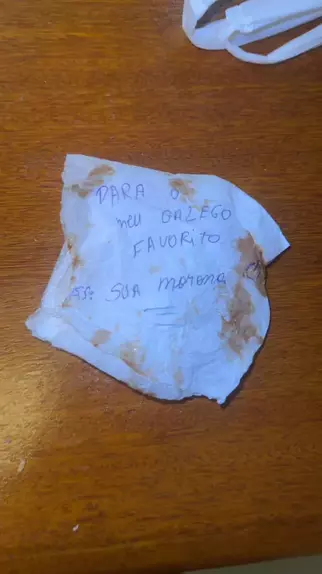 PARA O
meu GALEGO
FAVORITO
ass: SUA morena